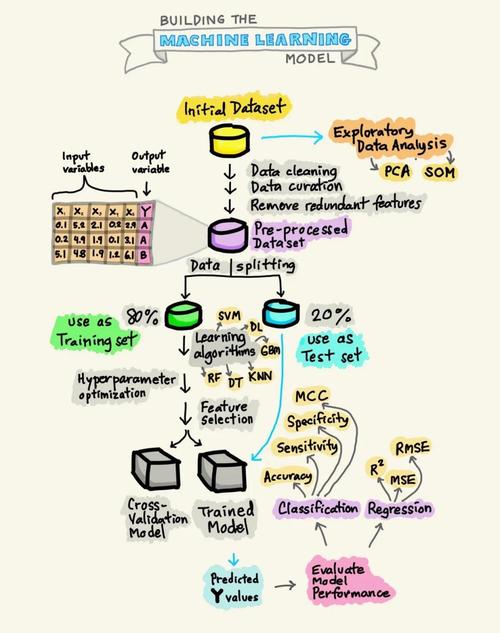 BUILDING THE
MACHINE LEARNING
MODEL
Initial Dataset
Exploratory
Data Analysis
PCA SOM
Data cleaning
Data curation
Remove redundant features
Input
variables
Output
variable
X, X, X, X, X, Y
0.1 5.2 2.1 0.2 2.9 A
0.2 4.9 1.9 0.1 3.1 A
5.1 4.8 1.9 1.2 6.1 B
Pre-processed
Dataset
Data splitting
80%
20%
use as
Training set
use as
Test set
Learning
algorithms
SVM
DL
GBM
KNN
DT
RF
Hyperparameter
optimization
Feature
selection
Cross-
Validation
Model
Trained
Model
MCC
Specificity
Sensitivity
Accuracy
Classification
RMSE
R²
MSE
Regression
Predicted
Y values
Evaluate
Model
Performance